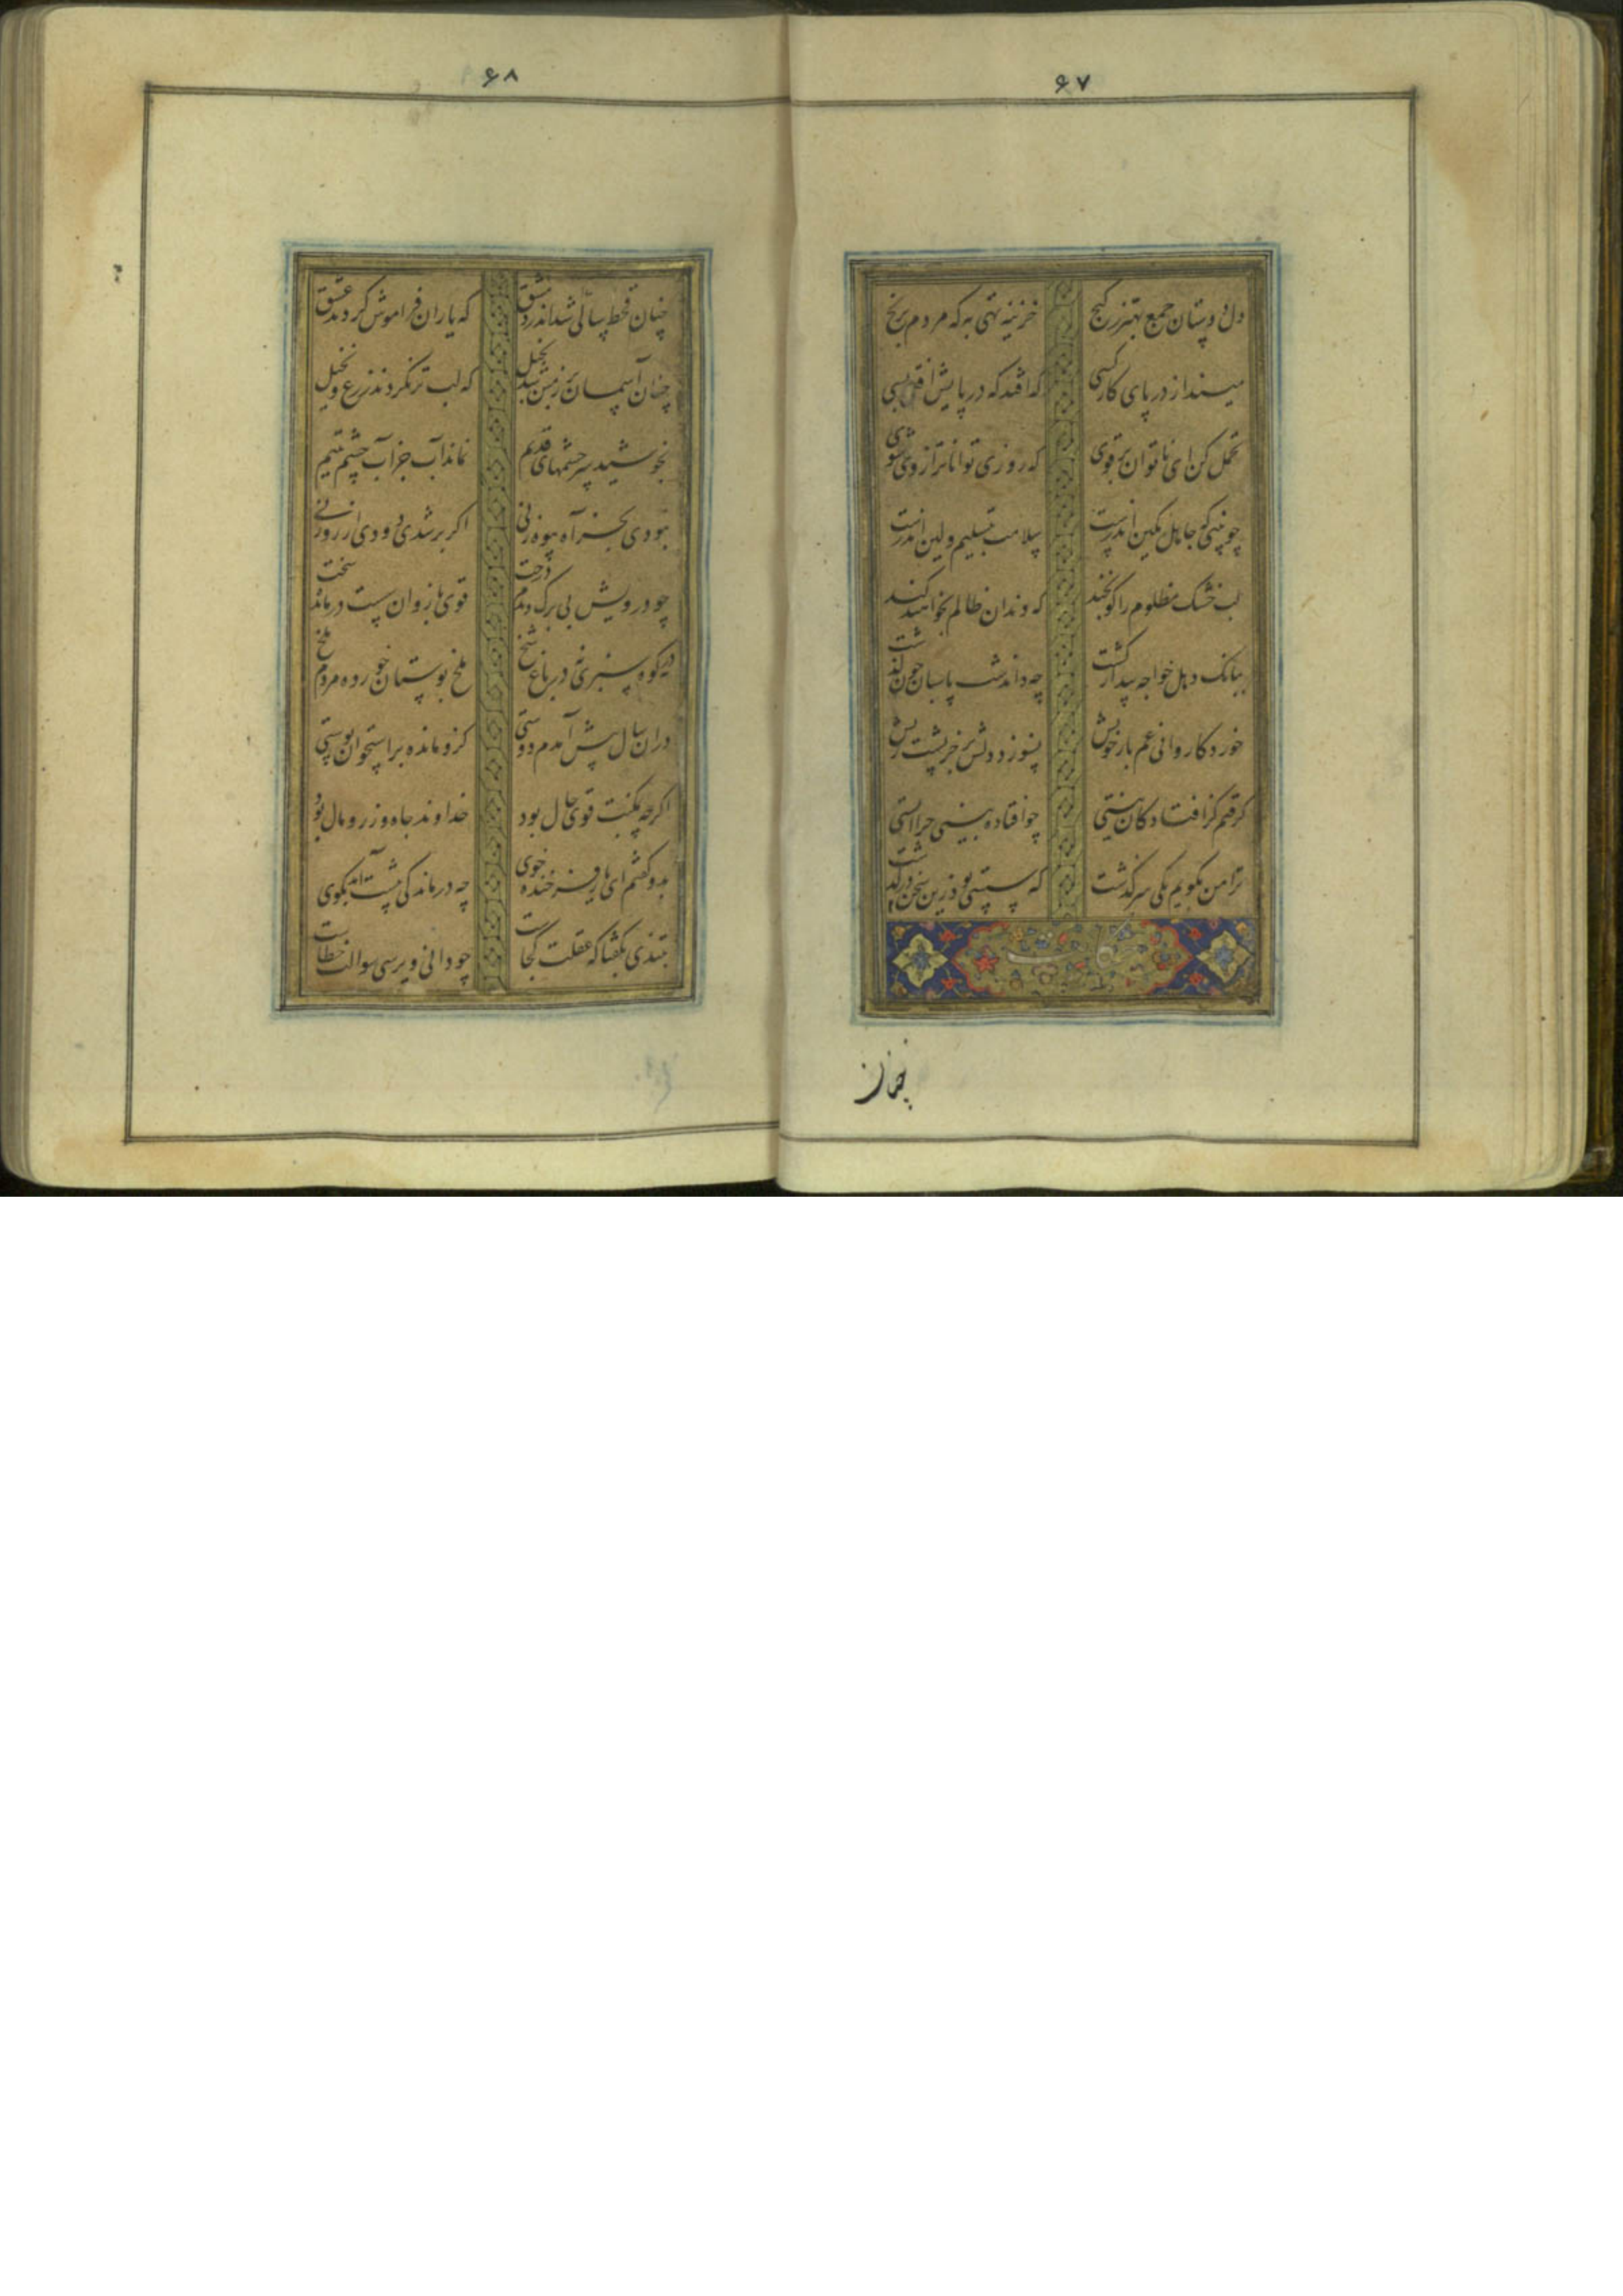 ۶۷
دل دوستان جمع بهتر ز گنج
خزینه تهی به که مردم برنج
مینداز در پای کار کسی
که افتد که در پایش افتی بسی
تحمل کن ای ناتوان بر قوی
که روزی تواناتر از وی شوی
لب خشک مظلوم را کو بخند
که دندان ظالم بخواهند کند
ببانک دهل خواجه بیدار کشت
چه داند شب پاسبان چون کذشت
خورد کاروانی غم بار خویش
نسوزد دلش بر خر پشت ریش
کرفتم کز افتادکان نیستی
چو افتاده بینی چرا ایستی
ترا من بکویم یکی سرکذشت
که سستی بود زین سخن درکذشت
چنان
۶۸
چنان قحط سالی شد اندر دمشق
که یاران فراموش کردند عشق
چنان آسمان بر زمین شد بخیل
که لب تر نکردند زرع و نخیل
بخوشید سرچشمهای قدیم
نماند آب جز آب چشم یتیم
نبودی بجز آه بیوه زنی
اکر بر شدی دودی از روزنی
چو درویش بی برک دیدم درخت
قوی بازوان سست درمانده سخت
نه در کوه سبزی نه در باغ شخ
ملخ بوستان خورده مردم ملخ
دران سال پیش آمدم دوستی
کزو مانده بر استخوان پوستی
اکرچه بمکنت قوی حال بود
خداوند جاه و زر و مال بود
بدو کفتم ای یار فرخنده خوی
چه درماندکی پیشت آمد بکوی
بتندی بکفتا که عقلت کجاست
چو دانی و پرسی سوالت خطاست